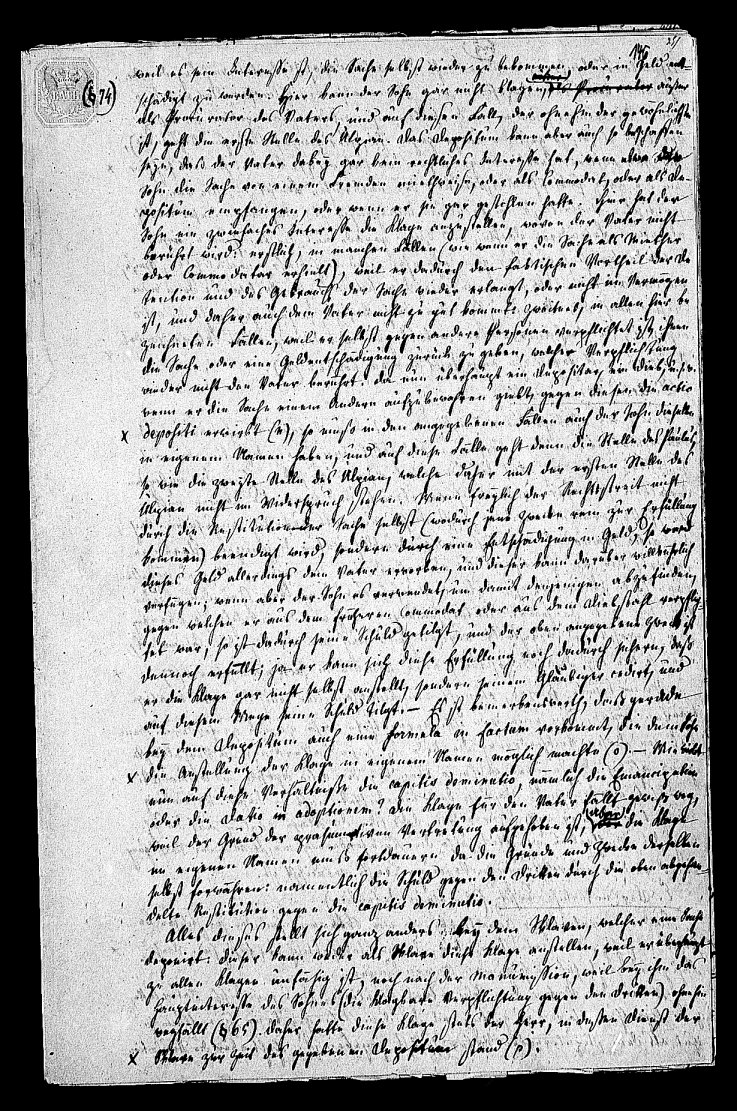 251
146
(§ 74)
weil es sein Interesse ist, die Sache selbst wieder zu bekommen, oder in Geld ent-
schädigt zu werden. Hier kann der Sohn gar nicht klagen, außer
als Procurator des Vaters, und auf diesen Fall, der ohnehin der gewöhnlichste
ist, geht die erste Stelle des Ulpian. Das Depositum kann aber auch so beschaffen
seyn, daß der Vater dabey gar kein rechtliches Interesse hat, wenn etwa der
Sohn die Sache von einem Fremden miethweise, oder als Commodat, oder als De-
positum empfangen, oder wenn er sie gar gestohlen hatte. Hier hat der
Sohn ein zwiefaches Interesse die Klage anzustellen, wovon der Vater nicht
berührt wird: erstlich, in manchen Fällen (wie wenn er die Sache als Miether
oder Commodatar erhielt), weil er dadurch den faktischen Vortheil der De-
tention und des Gebrauchs der Sache wieder erlangt, der nicht im Vermögen
ist, und daher auch dem Vater nicht zu gut kommt: zweitens, in allen hier be-
zeichneten Fällen, weil er selbst gegen andere Personen verpflichtet ist, ihnen
die Sache oder eine Geldentschädigung zurück zu geben, welche Verpflichtung
wieder nicht den Vater berührt. Da nun überhaupt ein Depositar, ein Dieb, u. s. w.
wenn er die Sache einem Andern aufzubewahren giebt, gegen diesen die actio
x depositi erwirbt (n), so muß in den angegebenen Fällen auch der Sohn dieselbe
in eigenem Namen haben, und auf diese Fälle geht denn die Stelle des Paulus,
so wie die zweyte Stelle des Ulpian, welche daher mit der ersten Stelle des
Ulpian nicht im Widerspruch stehen. Wenn freylich der Rechtsstreit nicht
durch die Restitution der Sache selbst (wodurch jene Zwecke rein zur Erfüllung
kommen) beendigt wird, sondern durch eine Entschädigung in Geld, so wird
dieses Geld allerdings dem Vater erworben, und dieser kann darüber willkührlich
verfügen; wenn aber der Sohn es verwendet, um damit denjenigen abzufinden,
gegen welchen er aus dem früheren Commodat, oder aus dem Diebstahl verpflich-
tet war, so ist dadurch seine Schuld getilgt, und der oben angegebene Zweck ist
dennoch erfüllt; ja er kann sich diese Erfüllung noch dadurch sichern, daß
er die Klage gar nicht selbst anstellt, sondern seinem Gläubiger cedirt, und
auf diesem Wege seine Schuld tilgt. – Es ist bemerkenswerth, daß gerade
bey dem Depositum auch eine formula in factum vorkommt, die dem Sohn
x die Anstellung der Klage in eigenem Namen möglich machte (o). – Wie wirkt
nun auf diese Verhältnisse die capitis deminutio, nämlich die Emancipation
oder die Datio in adoptionem? Die Klage für den Vater fällt gewiß weg,
weil der Grund der präsumtiven Vertretung aufgehoben ist, aber die Klage
im eigenen Namen muß fortdauern da die Gründe und Zwecke derselben
selbst fortwähren: namentlich die Schuld gegen den Dritten durch die oben abgehan-
delte Restitution gegen die capitis deminutio.
Alles dieses stellt sich ganz anders bey dem Sklaven, welcher eine Sache
deponirt. Dieser kann weder als Sklave diese Klage anstellen, weil er überhaupt
zu allen Klagen unfähig ist, noch nach der Manumission, weil bey ihm das
Hauptinteresse des Sohnes (die klagbare Verpflichtung gegen den Dritten) ohnehin
wegfällt (§ 65). Daher hatte diese Klage stets der Herr, in dessen Dienst der
x Sklave zur Zeit des gegebenen Depositum stand (p).